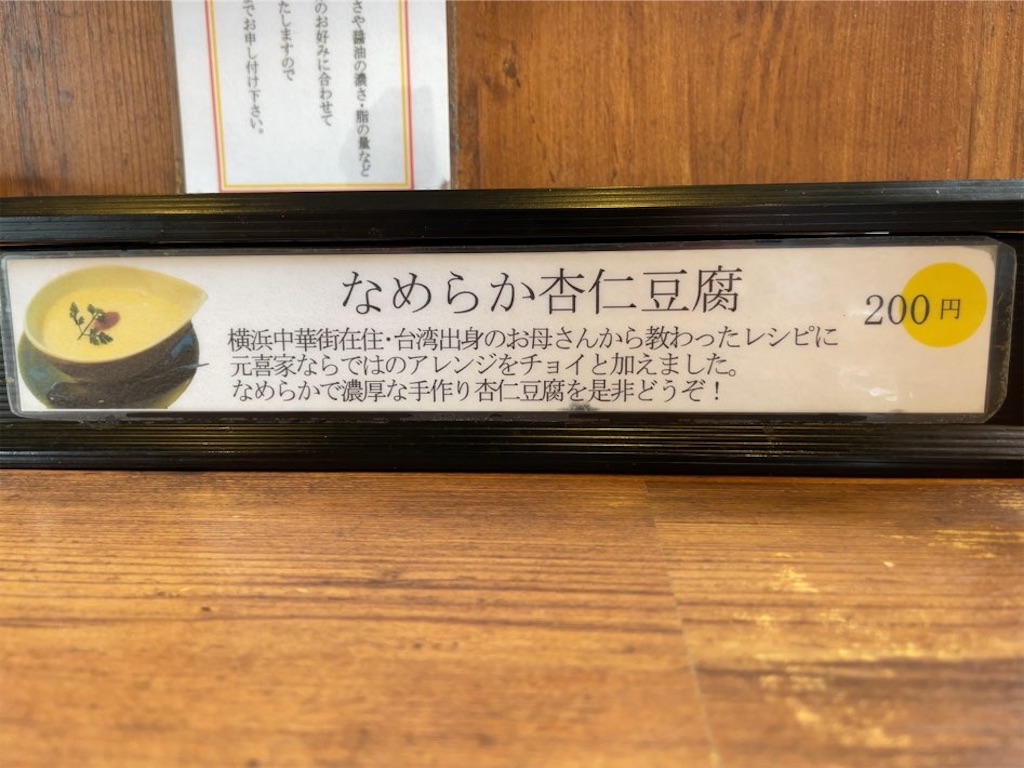 さや醤油の濃さ・脂の量など
のお好みに合わせて
たしますので
でお申し付け下さい。
なめらか杏仁豆腐
200円
横浜中華街在住・台湾出身のお母さんから教わったレシピに
元喜家ならではのアレンジをチョイと加えました。
なめらかで濃厚な手作り杏仁豆腐を是非どうぞ！